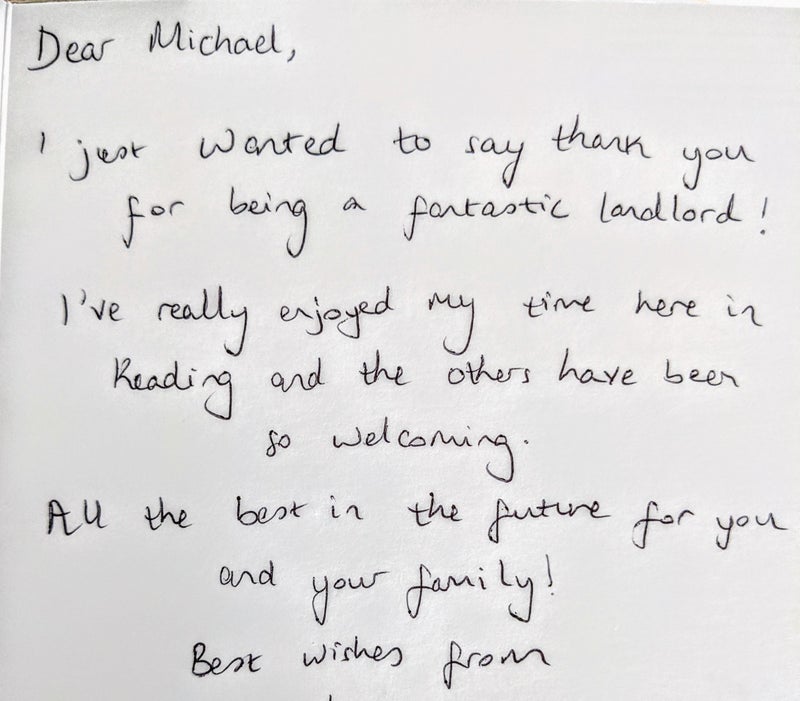 Dear Michael,
I just wanted to say thank you
for being a fantastic landlord!
I've really enjoyed my time here in
Reading and the others have been
so welcoming.
All the best in the future for you
and your family!
Best wishes from